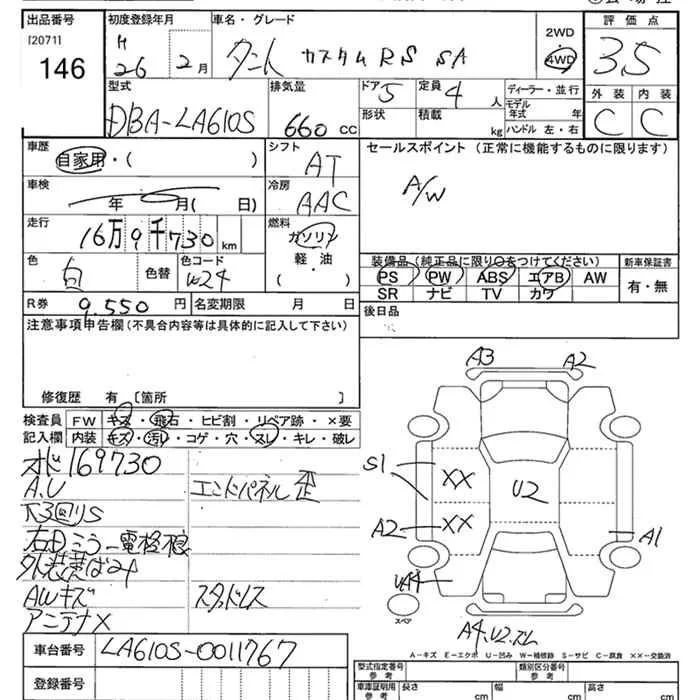 出品番号 初度登録年月 車名・グレード 2WD 評価点
[2071] H タント カスタム RS SA 4WD 3.5
146 26 2月
型式 排気量 ドア 5 定員 4人 ディーラー・並行 外装 内装
DBA-LA610S 660cc 形状 積載 kg モデル年式 年 C C
ハンドル 左・右
車歴 シフト セールスポイント (正常に機能するものに限ります)
自家用・( ) AT A/W
車検 冷房
年 月( 日) AAC
走行 燃料
16万9千730km ガソリン
色 色コード 軽・油 装備品 (純正品に限り○をつけてください) 新車保証書
白 色替 W24 ( ・ ) PS PW ABS エアB AW 有・無
R券 9,550円 名変期限 月 日 SR ナビ TV カワ
注意事項申告欄 (不具合内容等は具体的に記入して下さい) 後日品
修復歴 有 [箇所 ]
検査員 FW キズ・飛石・ヒビ割・リペア跡・×要
記入欄 内装 キズ・汚レ・コゲ・穴・スレ・キレ・破レ
169730
A,U エンドパネル歪
下3回りS
AWキズ スタッドレス
アンテナ×
車台番号 LA610S-0011767
登録番号
A3 A2
S1 XX U2
A2 XX A1
UA4
スペア A4.U2.スレ
A-キズ E-エクボ U-凹み W-補修跡 S-サビ C-腐食 ××-交換済
型式指定番号 参考 類別区分番号 参考
車庫証明用 参考 長さ cm 幅 cm 高さ cm